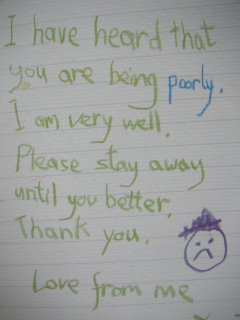 I have heard that
you are being poorly.
I am very well.
Please stay away
until you better.
Thank you.
Love from me